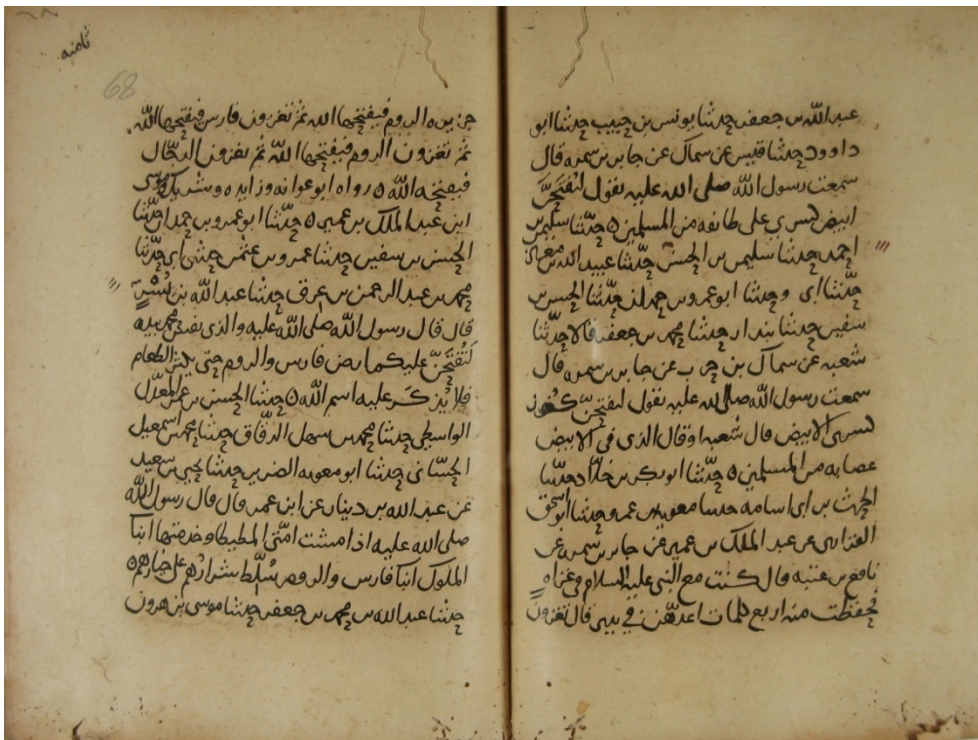 عبد الله بن جعفر حدثنا يونس بن حبيب حدثنا ابو
داوود حدثنا قيس عن سماك عن جابر بن سمره قال
سمعت رسول الله صلى الله عليه يقول لتفتحن
ابيض كسرى على طائفه من المسلمين ه حدثنا سليمن بن
احمد حدثنا سليمن بن الحسن حدثنا عبيد الله بن معاذ
حدثنا ابى وحدثنا ابو عمرو بن حمدان حدثنا الحسن بن
سفين حدثنا بندار حدثنا محمد بن جعفر قالا حدثنا
شعبه عن سماك بن حرب عن جابر بن سمره قال
سمعت رسول الله صلى الله عليه يقول لتفتحن كنوز
كسرى الابيض قال شعبه اوقال الذى فى الابيض
عصابه من المسلمين ه حدثنا ابو بكر بن خلاد حدثنا
الحرث بن ابى اسامه حدثنا معويه بن عمرو حدثنا ابو اسحق
الفزارى عن عبد الملك بن عمير عن جابر بن سمره عن
نافع بن عتبه قال كنت مع النبى عليه السلام فى غزاه
فحفظت منه اربع كلمات اعدهن في يدى قال تغزون
ثامنه
68
جزيره الروم فيفتحها الله ثم تغزون فارس فيفتحها الله
ثم تغزون الروم فيفتحها الله ثم تغزون الدجال
فيفتحه الله ه رواه ابو عوانه وزايده وشريك وموسى
ابن عبد الملك بن عمير ه حدثنا ابو عمرو بن حمدان حدثنا
الحسن بن سفين حدثنا عمرو بن عثمن حدثنى ابى حدثنا
محمد بن عبد الرحمن بن عرق حدثنا عبد الله بن بسر
قال قال رسول الله صلى الله عليه والذى نفس محمد بيده
لتفتحن عليكم ارض فارس والروم حتى يكثر الطعام
فلا يذكر عليه اسم الله ه حدثنا الحسن بن عمر المعدل
الواسطى حدثنا محمد بن سهل الدقاق حدثنا محمد بن اسمعيل
الحسانى حدثنا ابو معويه الضرير حدثنا يحيى بن سعيد
عن عبد الله بن دينار عن ابن عمر قال قال رسول الله
صلى الله عليه اذا مشت امتى المطيطا وخدمتها ابنا
الملوك ابنا فارس والروم سلط شرارهم على خيارهم ه
حدثنا عبد الله بن محمد بن جعفر حدثنا موسى بن هرون